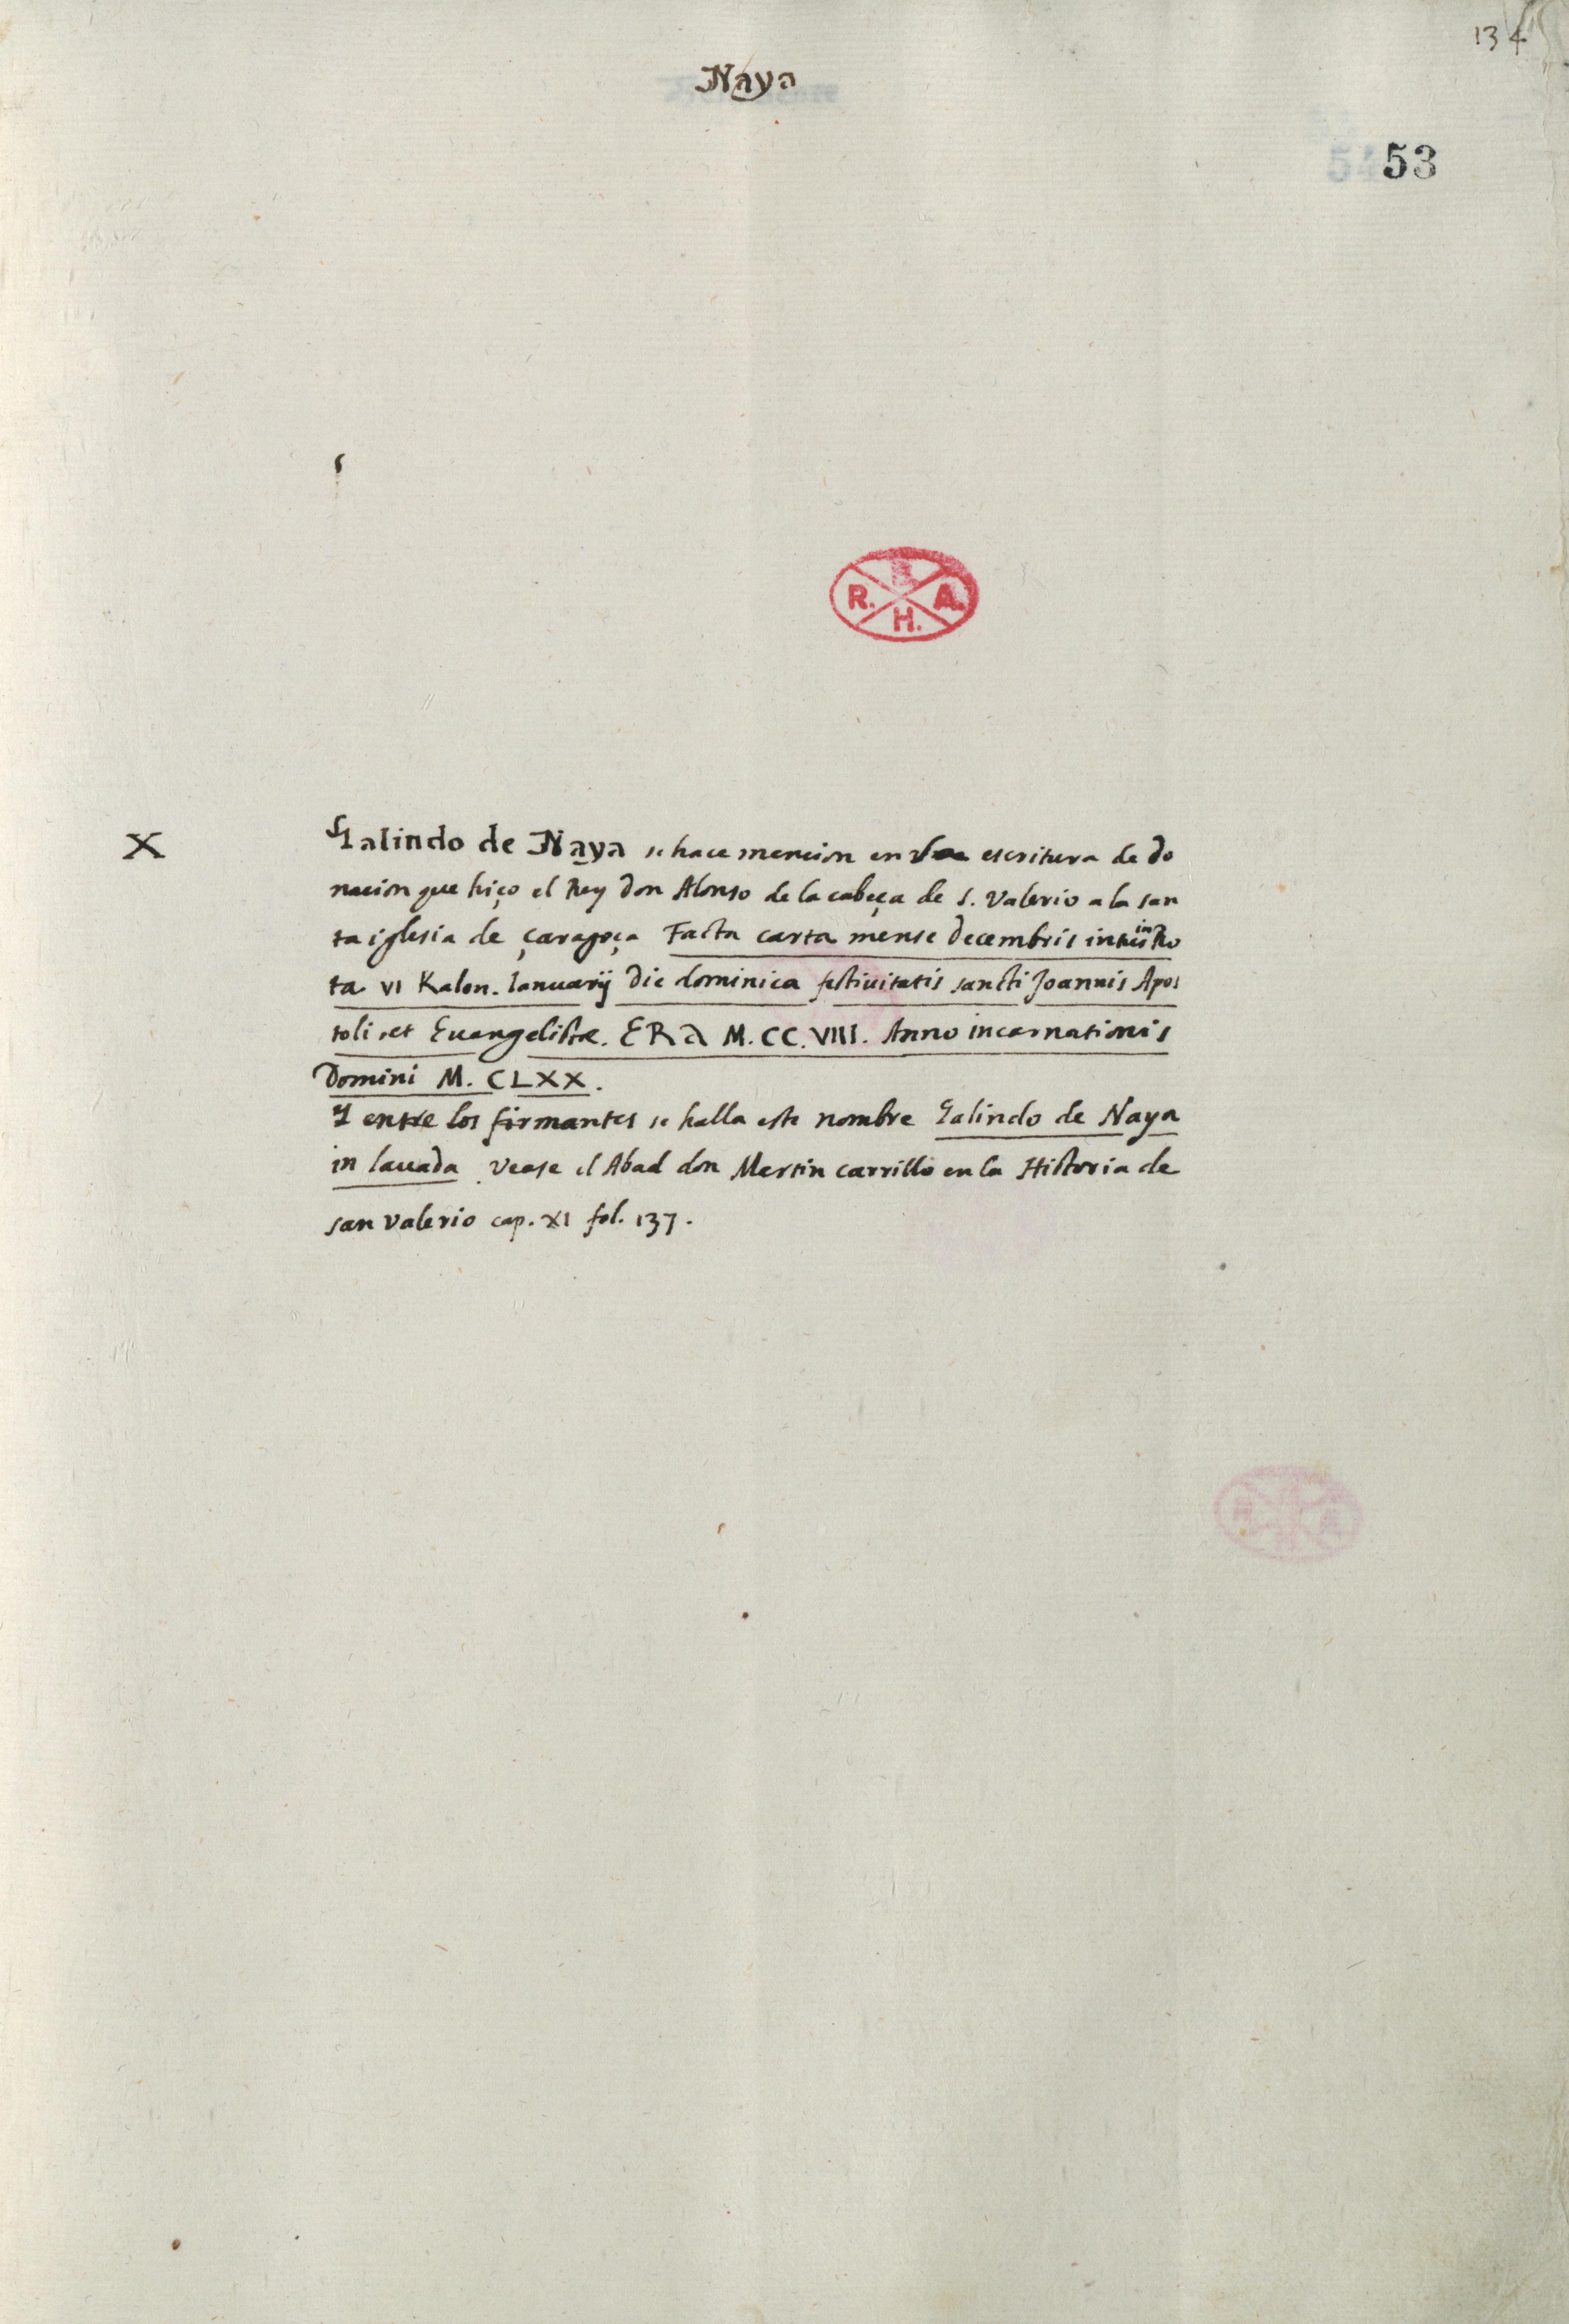 134
Naya
53
B
R. A.
H.
X
Galindo de Naya se hace mencion en vna escritura de do
nacion que hiço el Rey Don Alonso de la cabeça de S. Valerio a la san
ta iglesia de çaragoça Facta carta mense Decembris in
ta VI Kalen. Ianuarij Die dominica festiuitatis sancti Joannis Apos
toli et Euangelistæ. ERA M. CC. VIII. Anno incarnationis
Domini M. CLXX.
Y entre los firmantes se halla este nombre Galindo de Naya
in lauada. Vease el Abad don Martin carrillo en la Historia de
san Valerio cap. XI fol. 137.